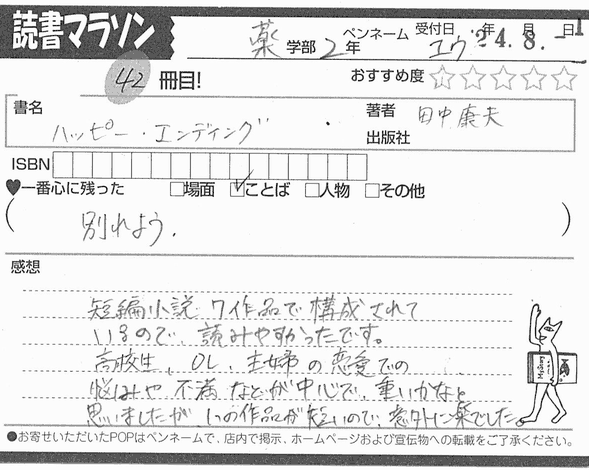 読書マラソン
薬学部2年 ペンネーム ユウ 受付日 24年8月-1日
42冊目!
おすすめ度 ☆☆☆☆☆
書名 ハッピー・エンディング
著者 田中康夫
出版社
ISBN
♥一番心に残った □場面 ☑ことば □人物 □その他
(別れよう.)
感想
短編小説 7作品で構成されて
いるので、読みやすかったです。
高校生、OL、主婦の恋愛での
悩みや不満などが中心で、重いかなと
思いましたが、1つの作品が短いので、意外に楽でした。
Mystery
●お寄せいただいたPOPはペンネームで、店内で掲示、ホームページおよび宣伝物への転載をご了承ください。